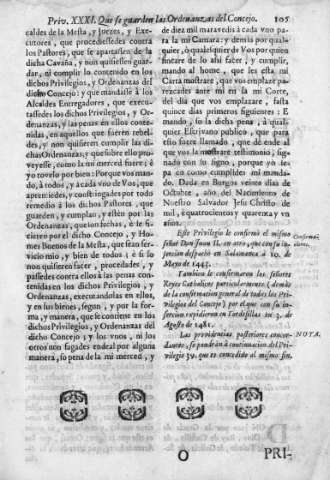 Priv. XXXI. Que se guarden las Ordenanzas del Concejo. 105
caldes de la Mesta, y Juezes, y Exe-
cutores, que procediessedes contra
los Pastores, que se apartassen de la
dicha Cavaña, y non quisiessen guar-
dar, ni cumplir lo contenido en los
dichos Privilegios, y Ordenanzas del
dicho Concejo: y que mandasse à los
Alcaldes Entregadores, que execu-
tassedes los dichos Privilegios, y Or-
denanzas, y las penas en ellos conte-
nidas, en aquellos que fueren rebel-
des, y non quisieren cumplir las di-
chas Ordenanzas, y que sobre ello pro-
veyesse, como la mi merced fuere: è
yo tovelo por bien: Porque vos man-
do, à todos, y à cada vno de Vos, que
apremiedes, y constringades por todo
remedio à los dichos Pastores, que
guarden, y cumplan, y estèn por las
Ordenanzas, que son fechas, è se fi-
cieren por el dicho Concejo, y Ho-
mes Buenos de la Mesta, que sean ser-
vicio mio, y bien de todos; è si lo
non quisieren facer, procedades, y
passedes contra ellos à las penas con-
tenidas en los dichos Privilegios, y
Ordenanzas, executandolas en ellos,
y en sus bienes, segun, y por la for-
ma, y manera, que se contiene en los
dichos Privilegios, y Ordenanzas del
dicho Concejo; y los vnos, ni los
otros non fagades ende al por alguna
manera, so pena de la mi merced, y
de diez mil maravedis à cada vno pa-
ra la mi Camara: y demàs por qual-
quier, ò qualesquier de Vos por quien
fincare de lo ahi facer, y cumplir,
mando al home, que les esta mi
Carta mostrare, que vos emplace, que
parezcades ante mi en la mi Corte,
del dia que vos emplazare, fasta
quince dias primeros siguientes: E
mando, so la dicha pena, à qualquier
Escrivano publico, que para
esto fuere llamado, que dè ende al
que vos la mostrare testimonio, sig-
nado con su signo, porque yo se-
pa en como complides mi manda-
do. Dada en Burgos veinte dias de
Octubre, año del Nacimiento de
Nuestro Salvador Jesu Christo de
mil, è quatrocientos y quarenta y vn
años.
Este Privilegio le confirmò el mismo
señor Don Juan II. en otro, que con su in-
sercion despachò en Salamanca à 10. de
Mayo de 1445.
Tambien le confirmaron los señores
Reyes Catholicos particularmente (demàs
de la confirmacion general de todos los Pri-
vilegios del Concejo) por el que con su in-
sercion expidieron en Tordesillas en 3. de
Agosto de 1481.
Las providencias posteriores concor-
NOTA.
dantes, se pondràn à continuacion del Pri-
vilegio 39. que es concedido al mismo fin.
O PRI-